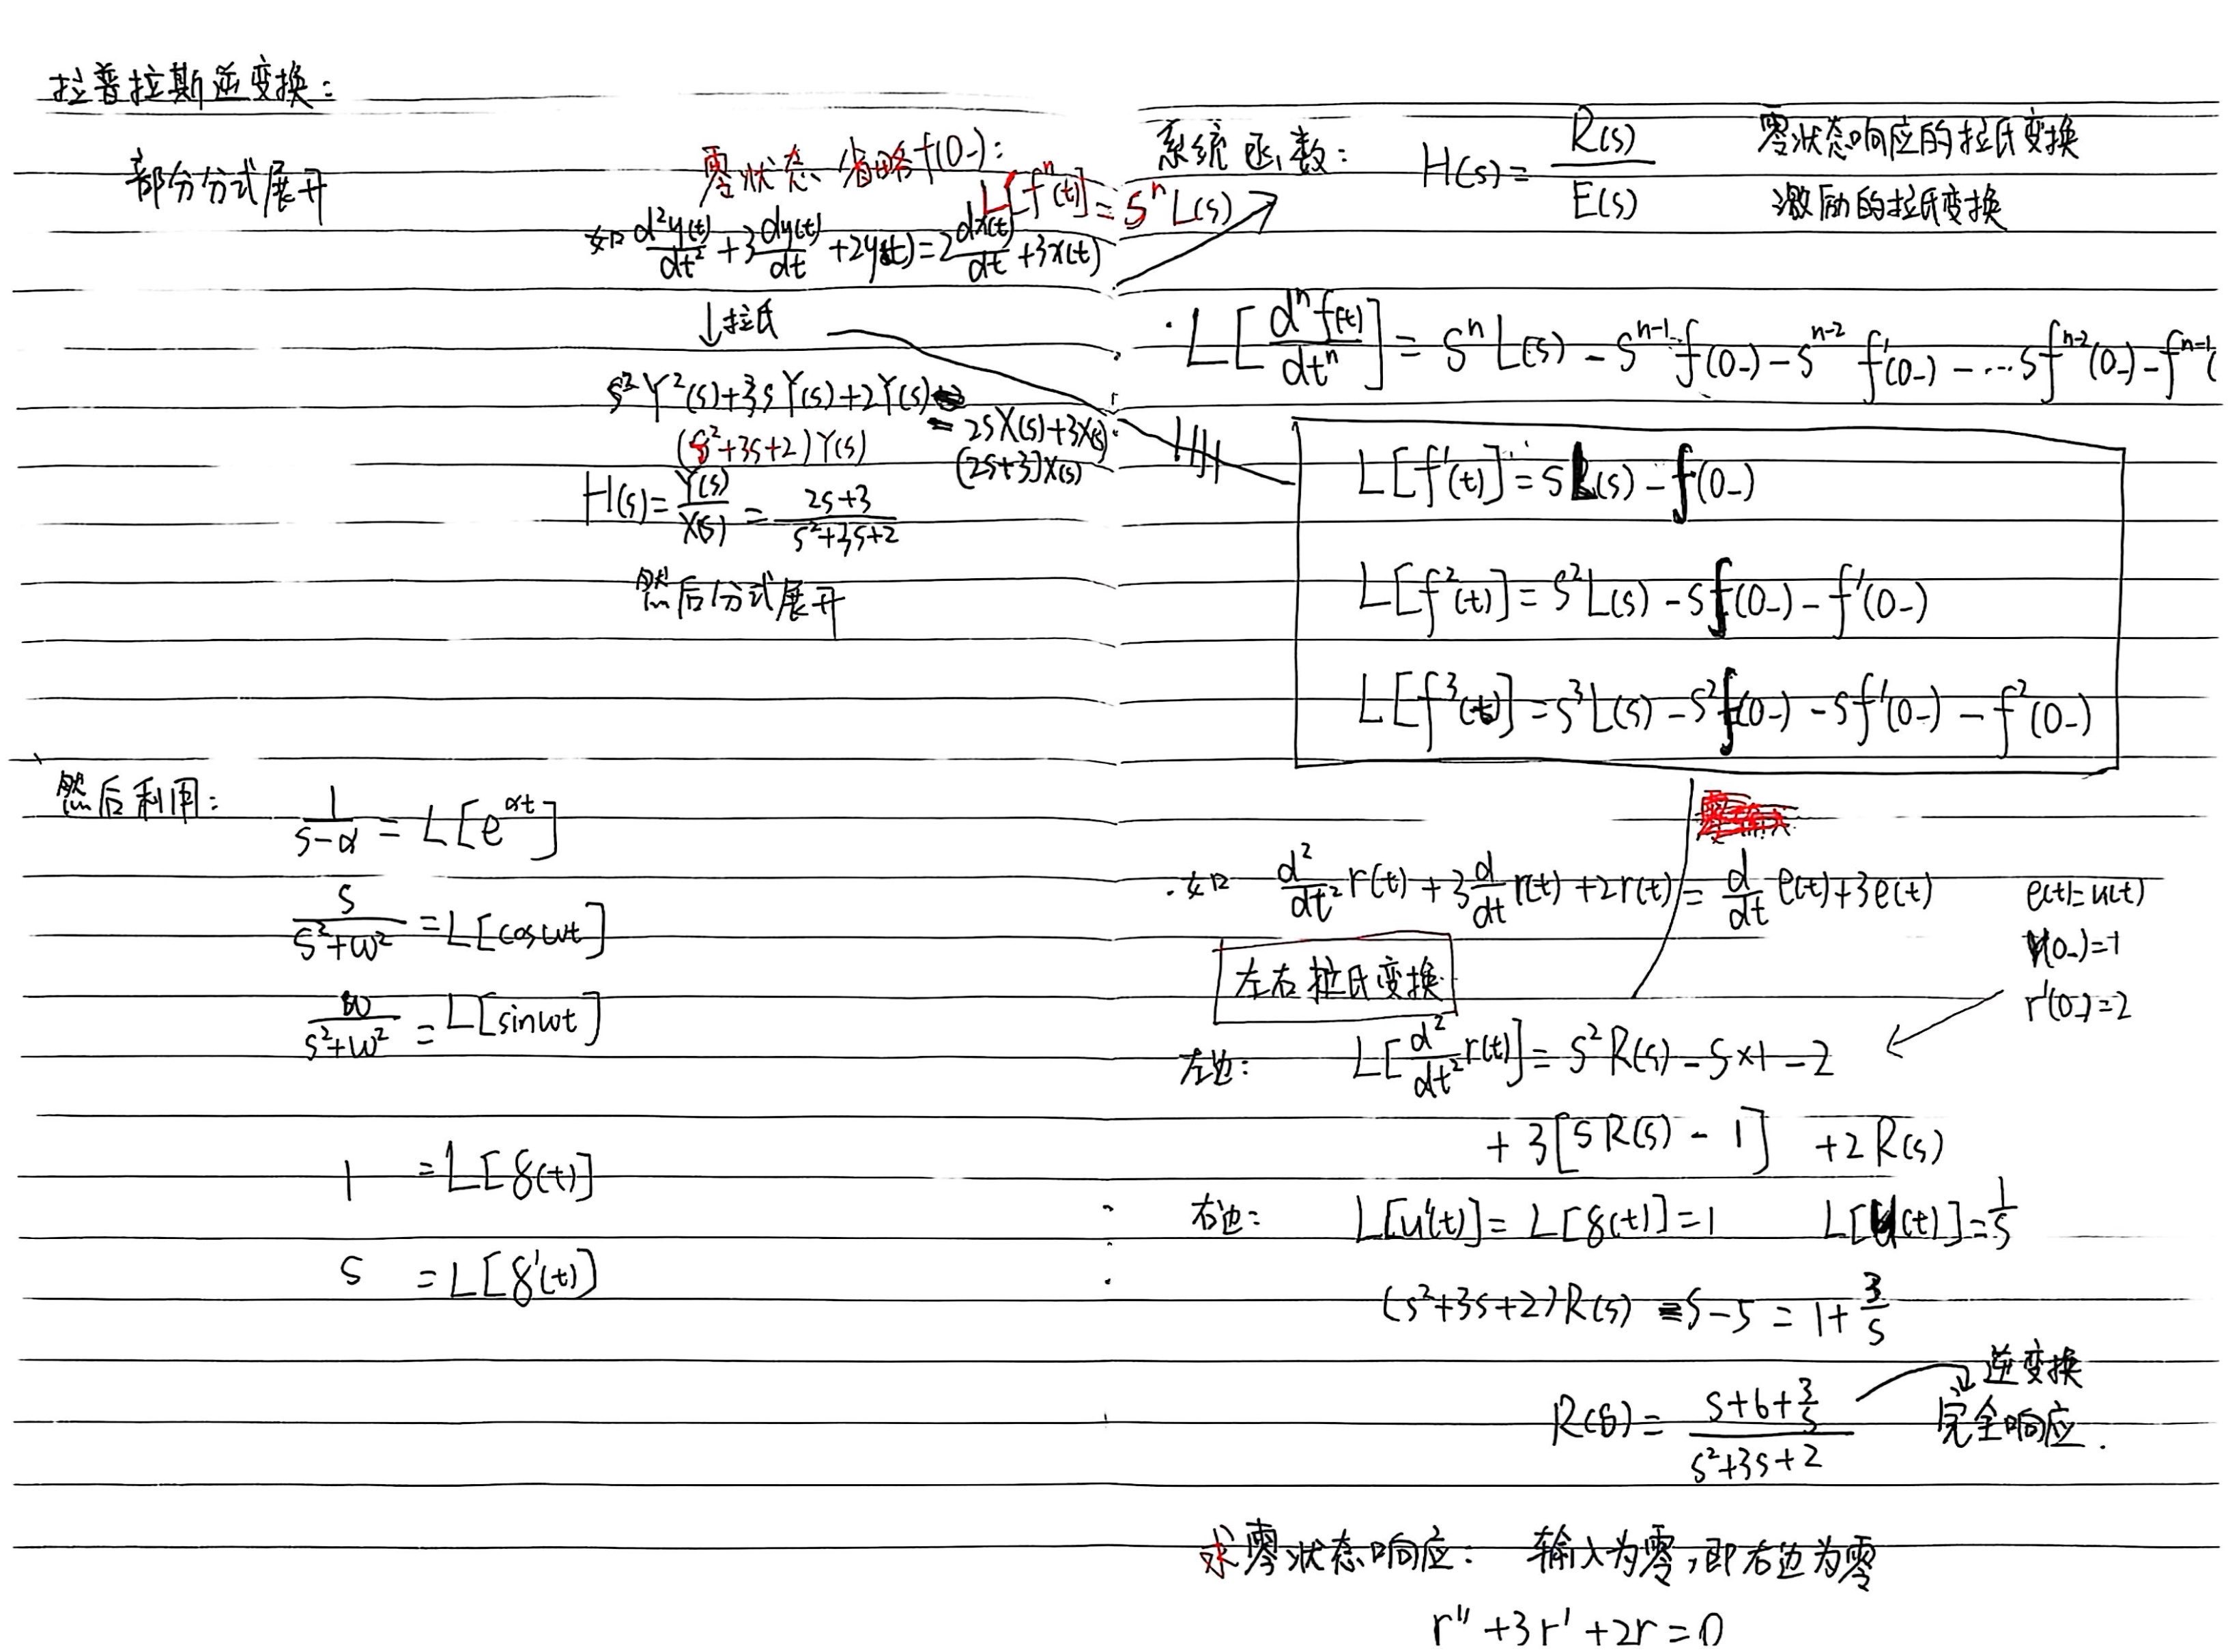 拉普拉斯逆变换：
部分分式展开
零状态 省略f(0-)：
L[fⁿ(t)] = SⁿL(s)
如 d²y(t)/dt² + 3dy(t)/dt + 2y(t) = 2dx(t)/dt + 3x(t)
↓拉氏
s²Y²(s)+3sY(s)+2Y(s)
= 2sX(s)+3X(s)
(s²+3s+2)Y(s)
(2s+3)X(s)
H(s) = Y(s)/X(s) = 2s+3/s²+3s+2
然后分式展开
然后利用：
1/s-α = L[e^αt]
s/s²+ω² = L[cosωt]
ω/s²+ω² = L[sinωt]
1 = L[δ(t)]
s = L[δ'(t)]
系统函数： H(s) = R(s)/E(s) 零状态响应的拉氏变换 激励的拉氏变换
· L[dⁿf(t)/dtⁿ] = SⁿL(s) - Sⁿ⁻¹f(0-) - Sⁿ⁻²f'(0-) - ··· Sfⁿ⁻²(0-) - fⁿ⁻¹(
L[f'(t)] = SL(s) - f(0-)
L[f²(t)] = S²L(s) - Sf(0-) - f'(0-)
L[f³(t)] = S³L(s) - S²f(0-) - Sf'(0-) - f²(0-)
· 如 d²/dt² r(t) + 3d/dt r(t) + 2r(t) = d/dt e(t) + 3e(t) e(t)=u(t)
r(0-)=1
r'(0-)=2
左右拉氏变换
左边： L[d²/dt² r(t)] = S²R(s) - S×1 - 2
+ 3[SR(s) - 1] + 2R(s)
右边： L[u'(t)] = L[δ(t)] = 1 L[u(t)] = 1/s
(s²+3s+2)R(s) - s - 5 = 1 + 3/s
R(s) = s+6+3/s / s²+3s+2
逆变换
完全响应.
求零状态响应： 输入为零，即右边为零
r'' + 3r' + 2r = 0